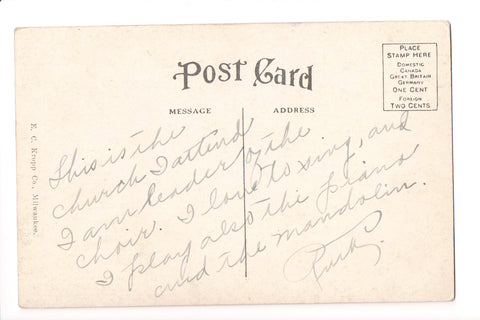 Post Card
MESSAGE
ADDRESS
PLACE
STAMP HERE
DOMESTIC
CANADA
GREAT BRITAIN
GERMANY
ONE CENT
FOREIGN
TWO CENTS
E. C. Kropp Co., Milwaukee.
This is the
church I attend
I am leader of the
choir. I love to sing, and
I play also the piano
and the mandolin.